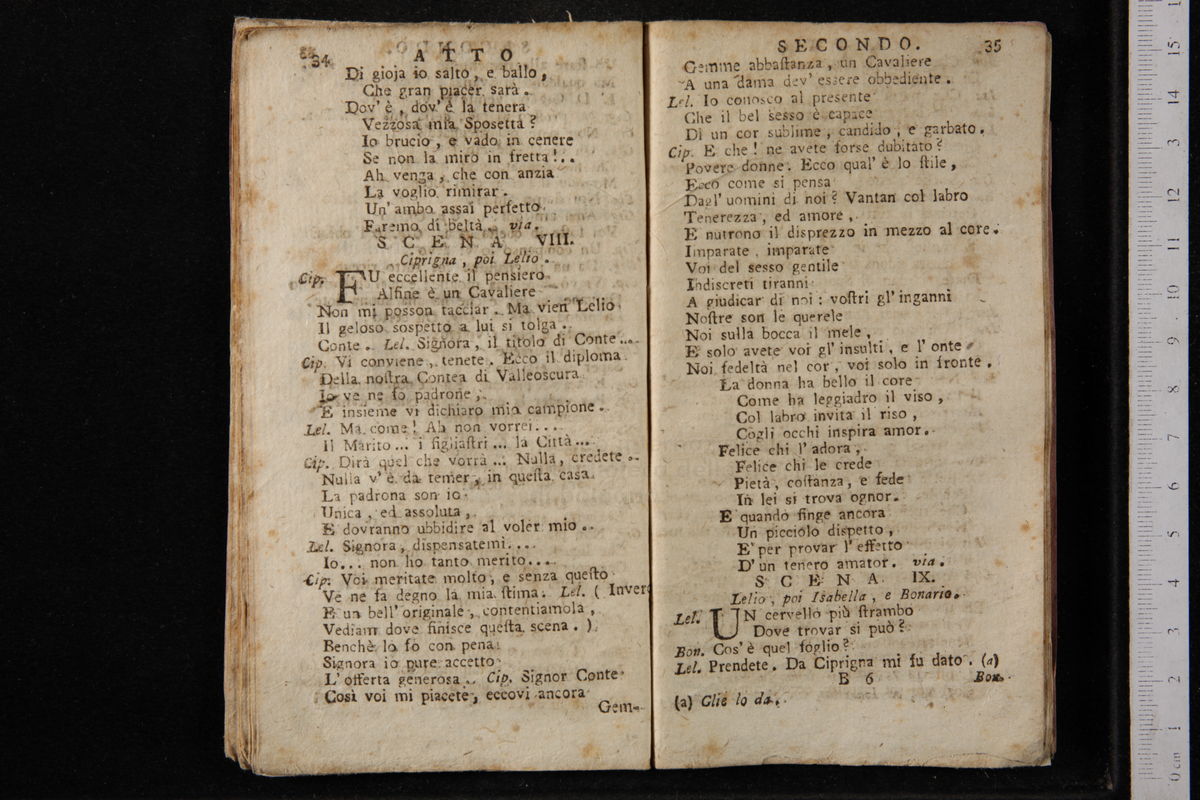 34 ATTO
Di gioja io salto, e ballo,
Che gran piacer sarà.
Dov' è, dov' è la tenera
Vezzosa mia Sposetta?
Io brucio, e vado in cenere
Se non la miro in fretta!..
Ah venga, che con anzia
La voglio rimirar.
Un' ambo assai perfetto
Faremo di beltà. via.
SCENA VIII.
Ciprigna, poi Lelio.
Cip. FU eccellente il pensiero
Alfine è un Cavaliere
Non mi posson tacciar. Ma vien Lelio
Il geloso sospetto a lui si tolga.
Conte. Lel. Signora, il titolo di Conte...
Cip. Vi conviene, tenete. Ecco il diploma
Della noſtra Contea di Valleoscura
Io ve ne fo padrone,
E insieme vi dichiaro mio campione.
Lel. Ma come! Ah non vorrei....
Il Marito... i figliaſtri... la Città...
Cip. Dirà quel che vorrà... Nulla, credete.
Nulla v' è da temer, in queſta casa
La padrona son io
Unica, ed assoluta,
E dovranno ubbidire al voler mio.
Lel. Signora, dispensatemi....
Io... non ho tanto merito....
Cip. Voi meritate molto, e senza queſto
Ve ne fa degno la mia ſtima. Lel. (Invero
E un bell' originale, contentiamola,
Vediam dove finisce queſta scena.)
Benchè lo fo con pena
Signora io pure accetto
L' offerta generosa. Cip. Signor Conte
Così voi mi piacete, eccovi ancora
Gem-
SECONDO. 35
Gemme abbaſtanza, un Cavaliere
A una dama dev' essere obbediente.
Lel. Io conosco al presente
Che il bel sesso è capace
Di un cor sublime, candido, e garbato.
Cip. E che! ne avete forse dubitato?
Povere donne. Ecco qual' è lo ſtile,
Ecco come si pensa
Dagl' uomini di noi? Vantan col labro
Tenerezza, ed amore,
E nutrono il disprezzo in mezzo al core.
Imparate, imparate
Voi del sesso gentile
Indiscreti tiranni
A giudicar di noi: voſtri gl' inganni
Noſtre son le querele
Noi sulla bocca il mele,
E solo avete voi gl' insulti, e l' onte
Noi fedeltà nel cor, voi solo in fronte.
La donna ha bello il core
Come ha leggiadro il viso,
Col labro invita il riso,
Cogli occhi inspira amor.
Felice chi l' adora,
Felice chi le crede
Pietà, coſtanza, e fede
In lei si trova ognor.
E quando finge ancora
Un picciolo dispetto,
E' per provar l' effetto
D' un tenero amator. via.
SCENA IX.
Lelio, poi Isabella, e Bonario.
Lel. UN cervello più ſtrambo
Dove trovar si può?
Bon. Cos' è quel foglio?
Lel. Prendete. Da Ciprigna mi fu dato. (a)
B 6 Bon.
(a) Glie lo da.